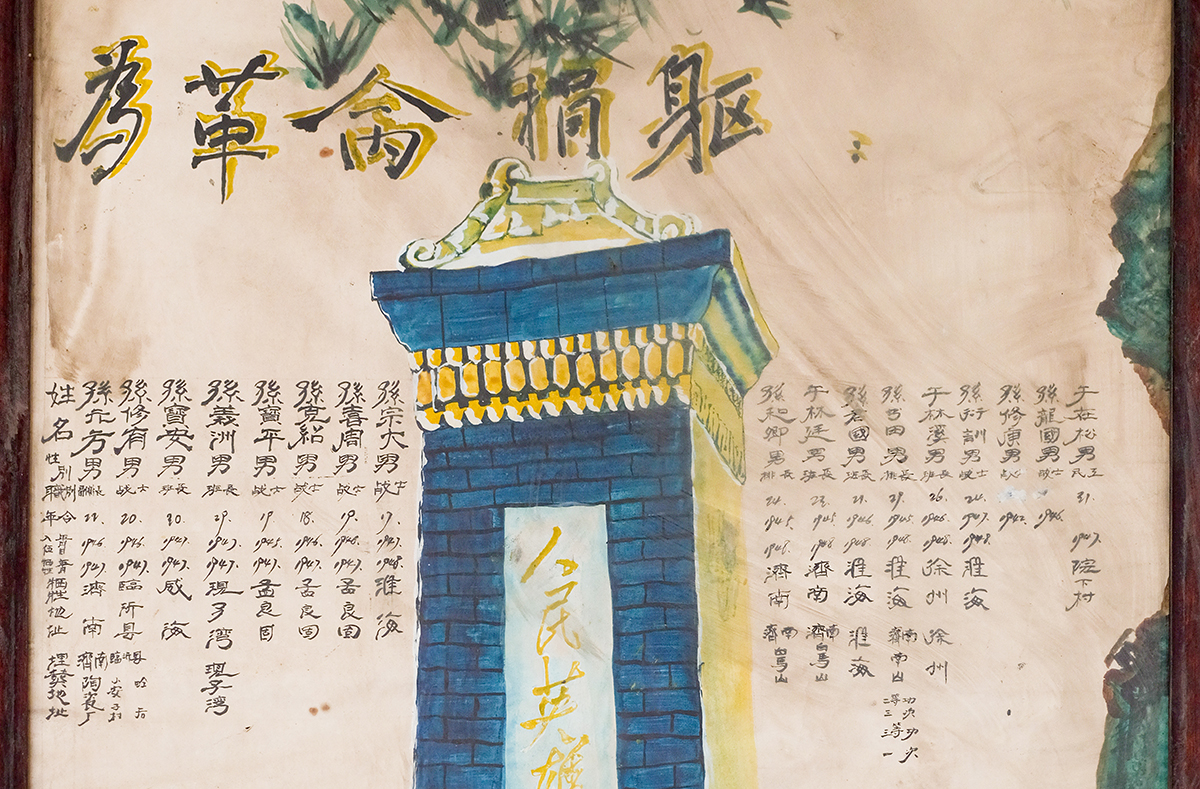 為革命捐驅
人民英雄
姓名 性別 職別 年令 入伍 犧牲 犧牲地址 埋葬地址
孫元方 男 21. 1946. 1947. 濟南 濟南陶瓷厂
孫修育 男 战士 20. 1946. 1947. 臨沂县
孫寶安 男 班長 30. 1947. 1947. 威海
孫義洲 男 班長 29. 1947. 1947. 现子湾 现子湾
孫寶平 男 战士 19 1945. 1947. 孟良固
孫克紹 男 战士 18. 1946. 1947. 孟良固
孫喜周 男 战士 19. 1946. 1947. 孟良固
孫宗大 男 战士 17. 1947. 1948. 淮海
孫起卿 男 排長 24. 1945. 1948. 濟南 濟南白馬山
于林廷 男 班長 23. 1945. 1948 濟南 濟南白馬山
孫君國 男 班長 21. 1946. 1948. 淮海 淮海
孫吉田 男 排長 29. 1945. 1948. 淮海 濟南南山 二等功三次 三等功一次
于林溪 男 班長 26. 1946. 1948. 徐州 徐州
孫行訓 男 战士 24. 1947. 1948. 淮海
孫修康 男 战士 1947.
孫龍國 男 战士 1946.
于在松 男 民工 31. 1947. 院下村